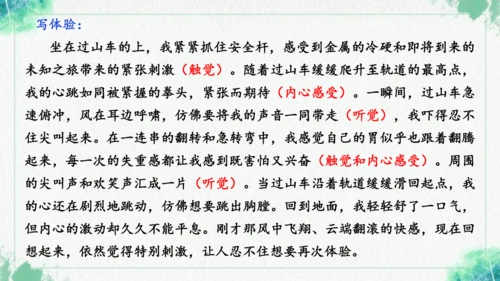 写体验：
坐在过山车的上，我紧紧抓住安全杆，感受到金属的冷硬和即将到来的
未知之旅带来的紧张刺激（触觉）。随着过山车缓缓爬升至轨道的最高点，
我的心跳如同被紧握的拳头，紧张而期待（内心感受）。一瞬间，过山车急
速俯冲，风在耳边呼啸，仿佛要将我的声音一同带走（听觉），我吓得忍不
住尖叫起来。在一连串的翻转和急转弯中，我感觉自己的胃似乎也跟着翻腾
起来，每一次的失重感都让我感到既害怕又兴奋（触觉和内心感受）。周围
的尖叫声和欢笑声汇成一片（听觉）。当过山车沿着轨道缓缓滑回起点，我
的心还在剧烈地跳动，仿佛想要跳出胸膛。回到地面，我轻轻舒了一口气，
但内心的激动却久久不能平息。刚才那风中飞翔、云端翻滚的快感，现在回
想起来，依然觉得特别刺激，让人忍不住想要再次体验。